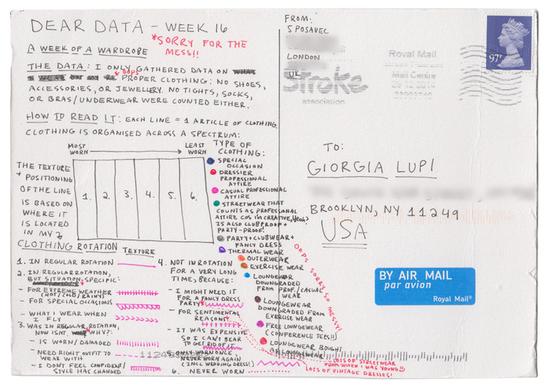 DEAR DATA - WEEK 16
*SORRY FOR THE MESS!!
A WEEK OF A WARDROBE
THE DATA: I ONLY GATHERED DATA ON
PROPER CLOTHING: NO SHOES,
ACCESSORIES, OR JEWELLERY. NO TIGHTS, SOCKS,
OR BRAS/UNDERWEAR WERE COUNTED EITHER.
HOW TO READ IT: EACH LINE = 1 ARTICLE OF CLOTHING
CLOTHING IS ORGANISED ACROSS A SPECTRUM:
MOST WORN
LEAST WORN
THE TEXTURE
+ POSITIONING
OF THE LINE
IS BASED ON
WHERE IT
IS LOCATED
IN MY
1. 2. 3. 4. 5. 6.
TYPE OF CLOTHING:
SPECIAL OCCASION
DRESSIER PROFESSIONAL ATTIRE
CASUAL PROFESSIONAL ATTIRE
STREETWEAR THAT
COUNTS AS PROFESSIONAL
ATTIRE COS I'M CREATIVE,
IS ALSO CLUBPROOF +
PARTY-PROOF.
PARTY+CLUBWEAR+
FANCY DRESS
THERMAL WEAR
OUTERWEAR
EXERCISE WEAR
LOUNGEWEAR
DOWNGRADED
FROM PROF/CASUAL
WEAR
LOUNGEWEAR
DOWNGRADED FROM
EXERCISE WEAR
FREE LOUNGEWEAR
(CONFERENCE TEES!!)
LOUNGEWEAR BOUGHT
OOPS SORRY, SO MESSY!
CLOTHING ROTATION TEXTURE
1. IN REGULAR ROTATION
2. IN REGULAR ROTATION,
BUT SITUATION-SPECIFIC:
- FOR EXTREME WEATHER
(HOT/COLD/RAINY)
- FOR SPECIAL OCCASIONS
- WHAT I WEAR WHEN
I FLY
3. WAS IN REGULAR ROTATION,
NOW ISN'T. WHY?:
- IS WORN/DAMAGED
- NEED RIGHT OUTFIT TO
WEAR WITH
- I DON'T FEEL CONFIDENT/
STYLE HAS CHANGED
4. NOT IN ROTATION
FOR A VERY LONG
TIME, BECAUSE:
- I MIGHT NEED IT
FOR A FANCY DRESS
PARTY
- FOR SENTIMENTAL
REASONS
- IT WAS EXPENSIVE
SO I CAN'T BEAR
TO GET RID OF IT
5. ONLY WORN ONCE,
NEVER WORN AGAIN
(INC WEDDING DRESS)
6. NEVER WORN
LOTS OF STREETWEAR
LOTS OF VINTAGE DRESSES!
FROM:
S POSAVEC
LONDON
UK
Royal Mail
Mail Centre
Stroke
association
97
TO:
GIORGIA LUPI
BROOKLYN, NY 11249
USA
BY AIR MAIL
par avion
Royal Mail